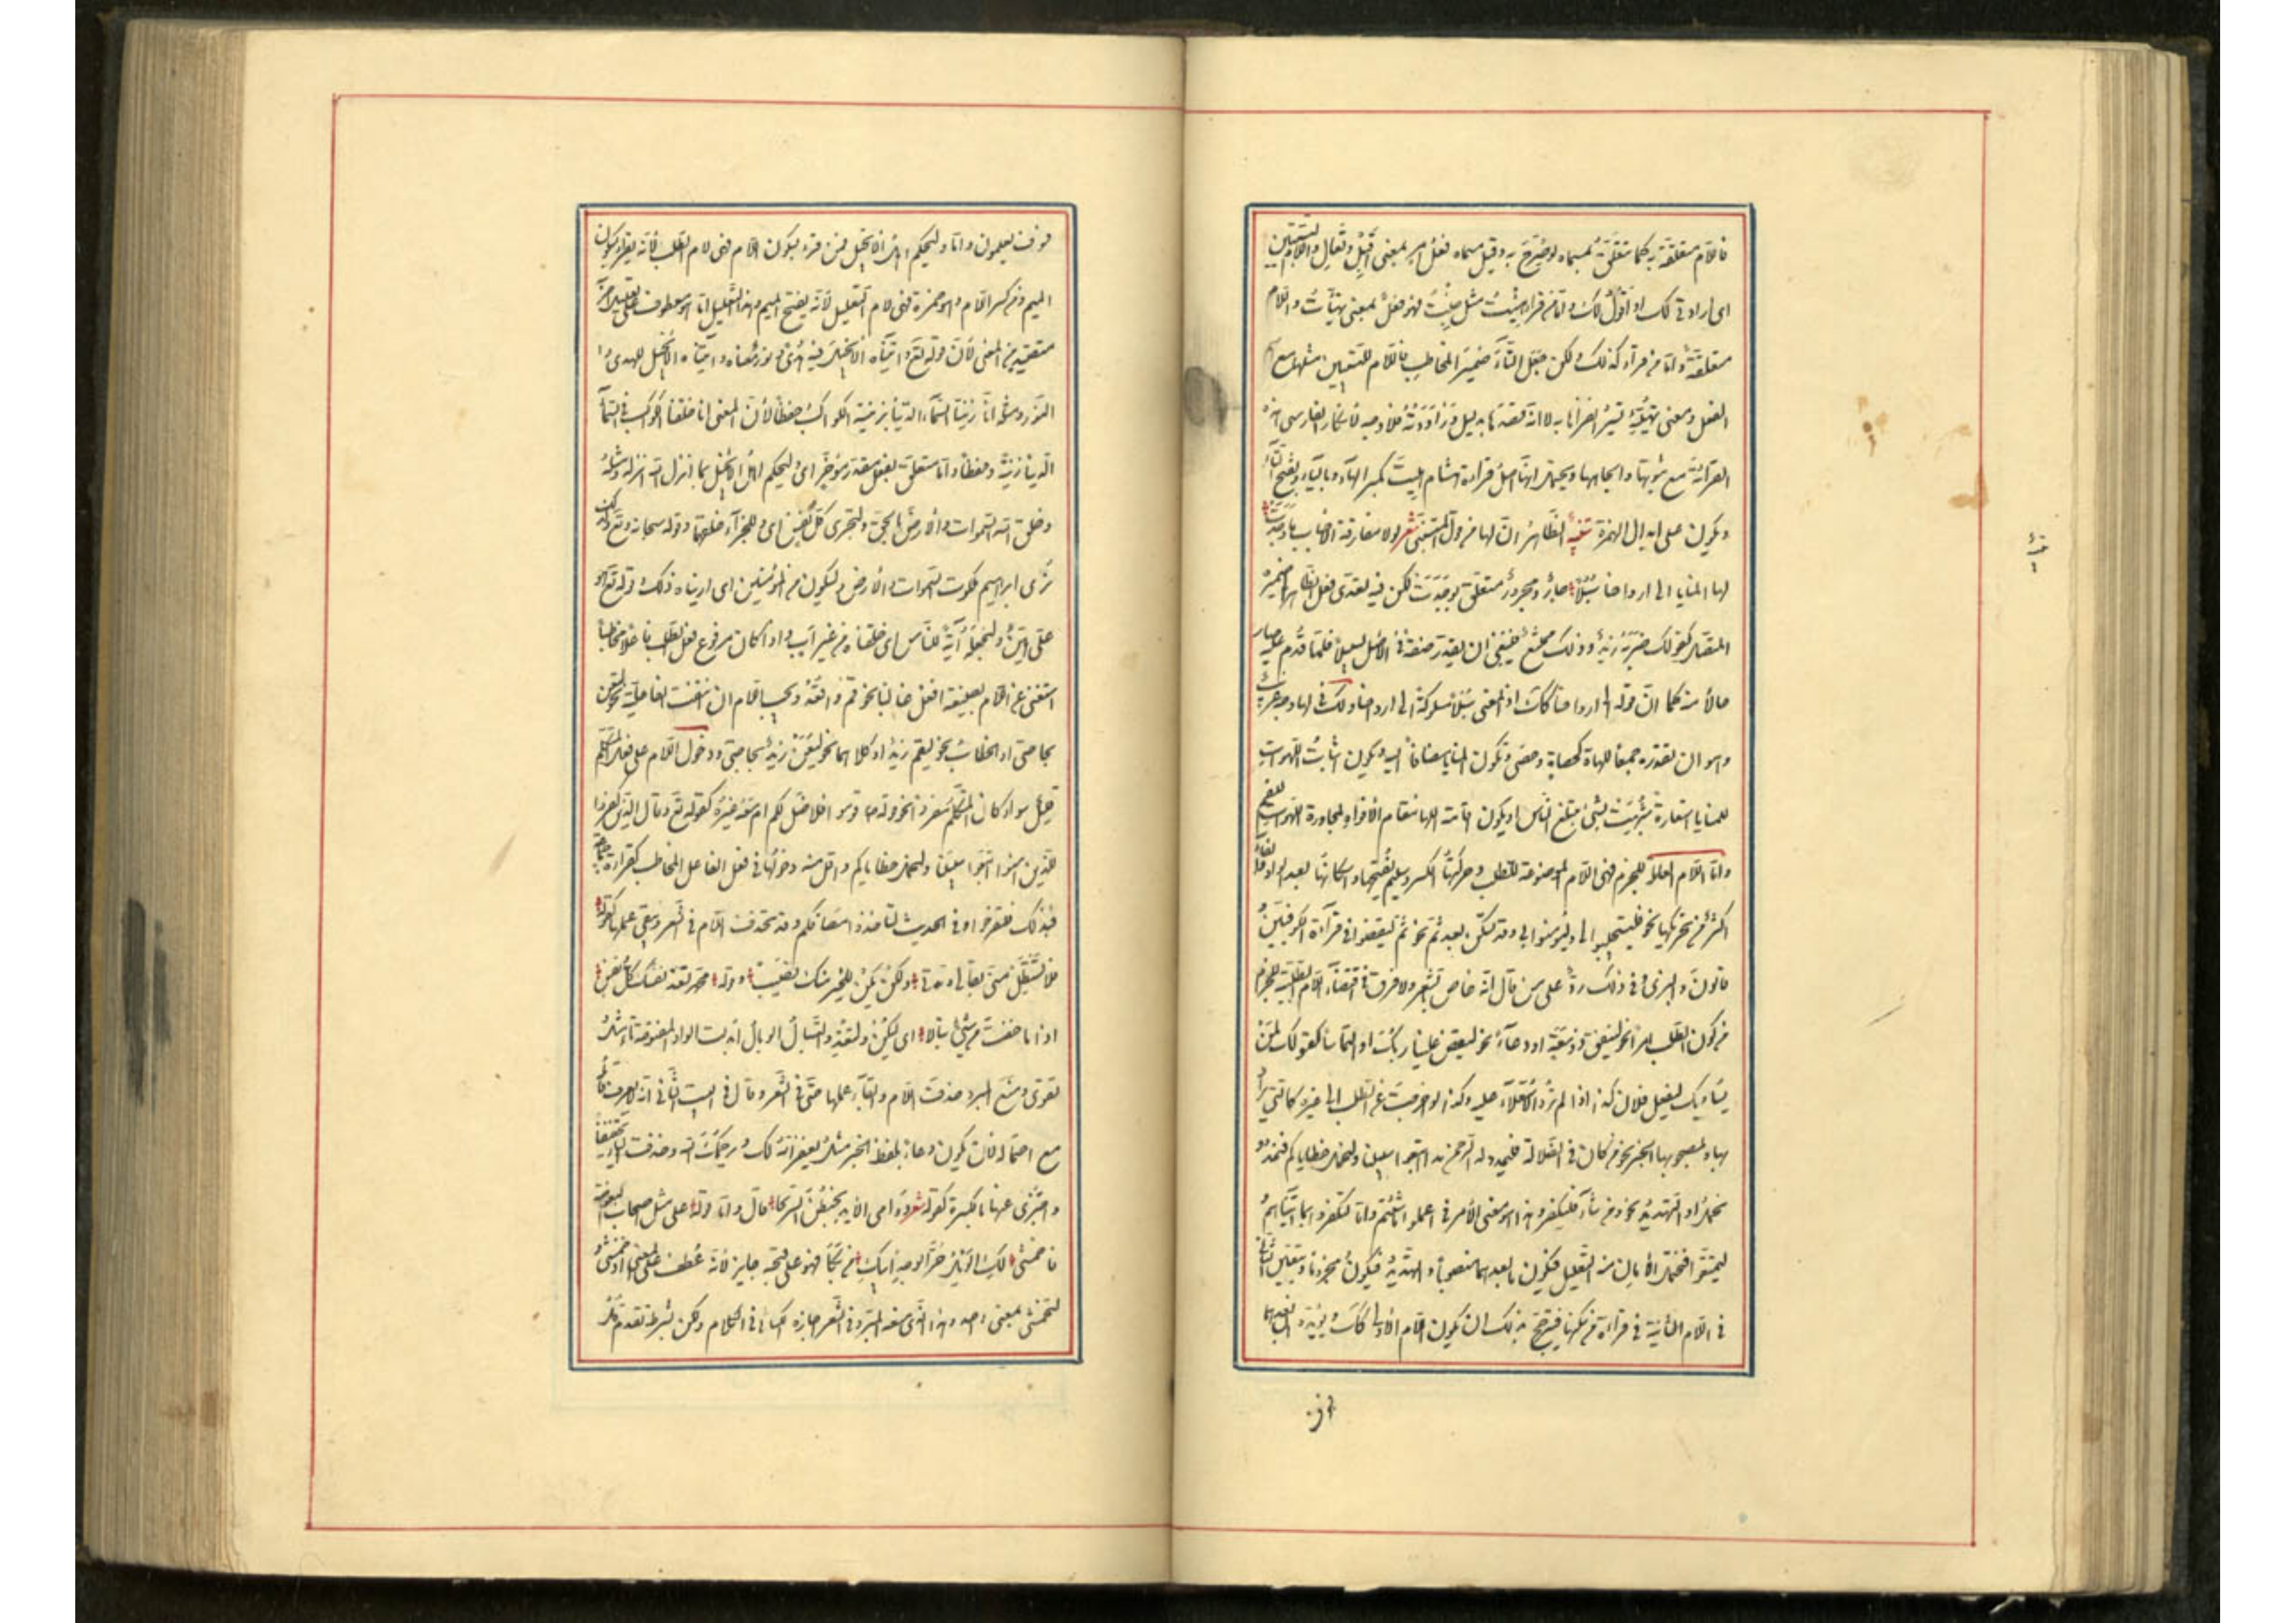 فاللام متعلقة به كما متعلق بمسماه لو صُرّح به وقيل مسماه فعل امر بمعنى اَقبِل وتعال واللام للتبيين
اى ارادتى لك او اقول لك واما من قرا هِيتُ مثل جِئتُ فهو فعل بمعنى تهيأت واللام
متعلقة به واما من قرأ كذلك ولكن جعل التاء ضمير المخاطب فاللام للتبيين مثلها مع اسم
الفعل ومعنى تهيّئه تيسّر انفرادها به لا انه قصدها بدليل وراودته فلا وجه لانكار الفارسى هذه
القراءة مع ثبوتها واتجاهها ويحتمل انها اصل قراءة هشام هيتَ بكسر الهاء وبالياء وبفتح التاء
وتكون على ابدال الهمزة تنبيه الظاهر ان لها من قول المتنبى شعر لولا مفارقة الاحباب ما وجدت
لها المنايا الى ارواحنا سُبُلا جار ومجرور متعلق بوجدت لكن فيه تعدى فعل الظاهر الى ضميره
المتصل كقولك ضربه زيد وذلك ممتنع فينبغى ان يقدر صفة فى الاصل لسبلا فلما قدم عليه صار
حالا منه كما ان قوله الى ارواحنا كذلك اذ المعنى سبلا مسلوكة الى ارواحنا ولك فى لها وجه غريب
وهو ان تقدره جمعا للهاة كحصاة وحصى وتكون المنايا مضافا اليه ويكون اثبات اللهوات
للمنايا استعارة شبهت بشئ يبتلع الناس او يكون اقامة اللها مقام الافواه لمجاورة اللهوات للفم
واما اللام العاملة للجزم فهى اللام الموضوعة للطلب وحركتها الكسر وسليم تفتحها واسكانها بعد الواو والفاء
اكثر من تحريكها نحو فليستجيبوا لى وليؤمنوا بى وقد تسكن بعد ثم نحو ثم ليقضوا فى قراءة الكوفيين
وقالون والبزى وفى ذلك رد على من قال انه خاص بالشعر ولا فرق فى اقتضاء اللام الطلبية للجزم
من كون الطلب امرا نحو لينفق ذو سعة او دعاء نحو ليقض علينا ربك او التماسا كقولك لمن
يساويك ليفعل فلان كذا اذا لم ترد الاستعلاء عليه وكذا لو اخرجت عن الطلب الى غيره كالتى يراد
بها وبمصحوبها الخبر نحو من كان فى الضلالة فليمدد له الرحمن مدا اتبعوا سبيلنا ولنحمل خطاياكم فيمدد
نحمل او التهديد نحو ومن شاء فليكفر وهذا هو معنى الامر فى اعملوا ما شئتم واما ليكفروا بما اتيناهم
ليتمتعوا فيحتمل اللامان منه التعليل فيكون ما بعدهما منصوبا والتهديد فيكون مجزوما ويتعين الثانى
فى اللام الثانية فى قراءة من سكنها فيترجح بذلك ان تكون اللام الاولى كذلك ويؤيده ان بعدهما
فسوف تعلمون واما وليحكم اهل الانجيل فمن قرء بسكون اللام فهى لام الطلب لانه يقرء بسكون
الميم ومن كسر اللام وهو حمزة فهى لام التعليل لانه يفتح الميم وهذا التعليل اما معطوف على تعليل آخر
متصيد من المعنى لان قوله تع واتيناه الانجيل فيه هدى ونور معناه واتيناه الانجيل للهدى و
النور ومثله انا زينا السماء الدنيا بزينة الكواكب وحفظا لان المعنى انا خلقنا الكواكب فى السماء
الدنيا زينة وحفظا واما متعلق بفعل مقدر مؤخر اى وليحكم اهل الانجيل بما انزل الله انزله ومثله
وخلق الله السموات والارض بالحق ولتجزى كل نفس اى وللجزاء خلقهما وقوله سبحانه وتع وكذلك
نرى ابراهيم ملكوت السموات والارض وليكون من الموقنين اى اريناه ذلك وقوله تع هو
على هين ولنجعله آية للناس اى خلقناه من غير اب واذا كان مرفوع فعل الطلب فاعلا مخاطبا
استغنى عن اللام بصيغة افعل غالبا نحو قم واقعد وتجب اللام ان انتفت الفاعلية نحو لتعن
بحاجتى او الخطاب نحو ليقم زيد او كلاهما نحو ليعن زيد بحاجتى ودخول اللام على فعل المتكلم
قليل سواء كان المتكلم مفردا نحو قوله ص قوموا فلاصل لكم ام معه غيره كقوله تع وقال الذين كفروا
للذين امنوا اتبعوا سبيلنا ولنحمل خطاياكم واقل منه دخولها فى فعل الفاعل المخاطب كقراءة جماعة
فبذلك فلتفرحوا وفى الحديث لتأخذوا مصافكم وقد تحذف اللام فى الشعر ويبقى عملها كقوله
فلا تستطل منى بقائى ومدتى ولكن يكن للخير منك نصيب وقوله محمد تفد نفسك كل نفس
اذا ما خفت من شئ تبالا اى ليكن ولتفد والتبال الوبال ابدلت الواو المفتوحة تاء مثل
تقوى ومنع المبرد حذف اللام وابقاء عملها حتى فى الشعر وقال فى البيت الثانى انه لا يعرف قائله
مع احتماله لان يكون دعاء بلفظ الخبر مثل يغفر الله لك ويرحمك الله وحذفت الياء تخفيفا
واجتزى عنها بالكسرة كقوله شعر دوامى الايد يخبطن السريحا قال واما قوله على مثل اصحاب البعوضة
فاخمشى لك الويل حر الوجه او يبك من بكا فهو على قبحه جايز لانه عطف على المعنى اذ اخمشى و
لتخمشى بمعنى واحد وهذا الذى منعه المبرد فى الشعر اجازه الكسائى فى الكلام ولكن بشرط تقدم قل